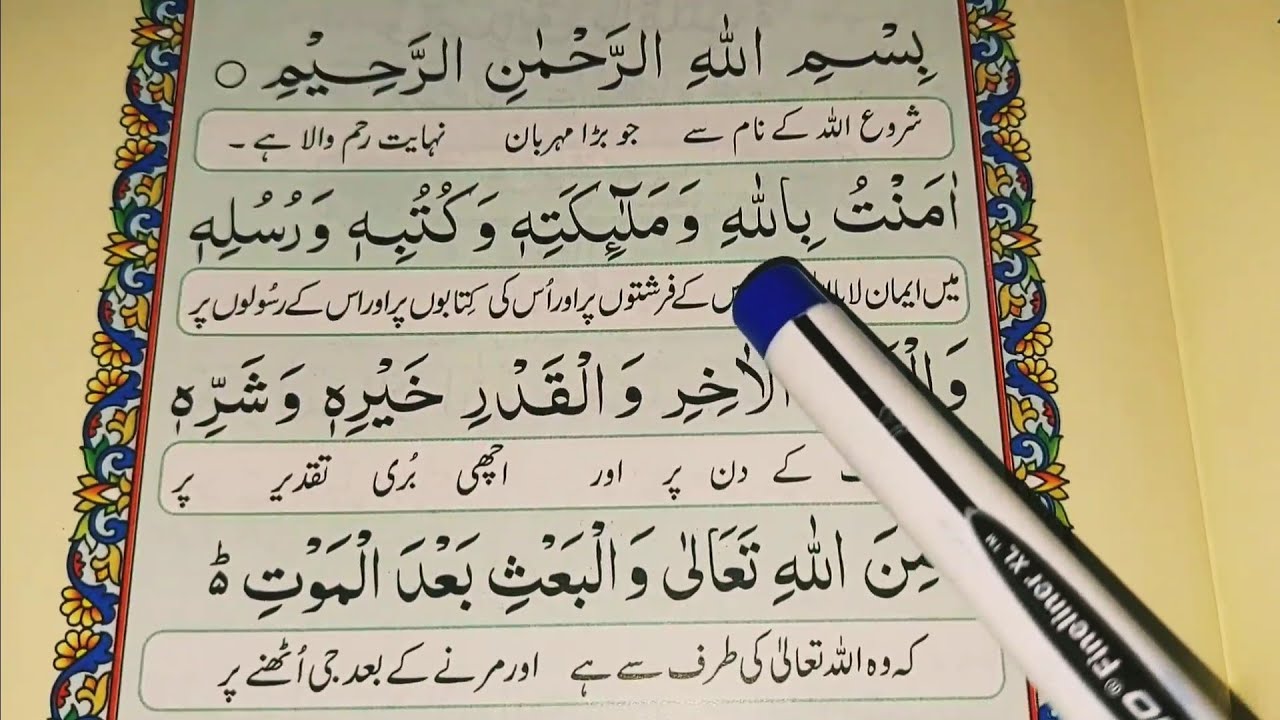 بِسْمِ اللّٰهِ الرَّحْمٰنِ الرَّحِيْمِ ○
شروع اللہ کے نام سے جو بڑا مہربان نہایت رحم والا ہے۔
اٰمَنْتُ بِاللّٰهِ وَمَلٰٓئِكَتِهٖ وَكُتُبِهٖ وَرُسُلِهٖ
میں ایمان لایا کے فرشتوں پر اور اُس کی کِتابوں پر اور اس کے رسُولوں پر
الْاٰخِرِ وَالْقَدْرِ خَيْرِهٖ وَشَرِّهٖ
کے دن پر اور اچھی بُری تقدیر پر
مِنَ اللّٰهِ تَعَالٰى وَالْبَعْثِ بَعْدَ الْمَوْتِ ؕ
کہ وہ اللہ تعالیٰ کی طرف سے ہے اور مرنے کے بعد جی اُٹھنے پر
Fineliner XL™